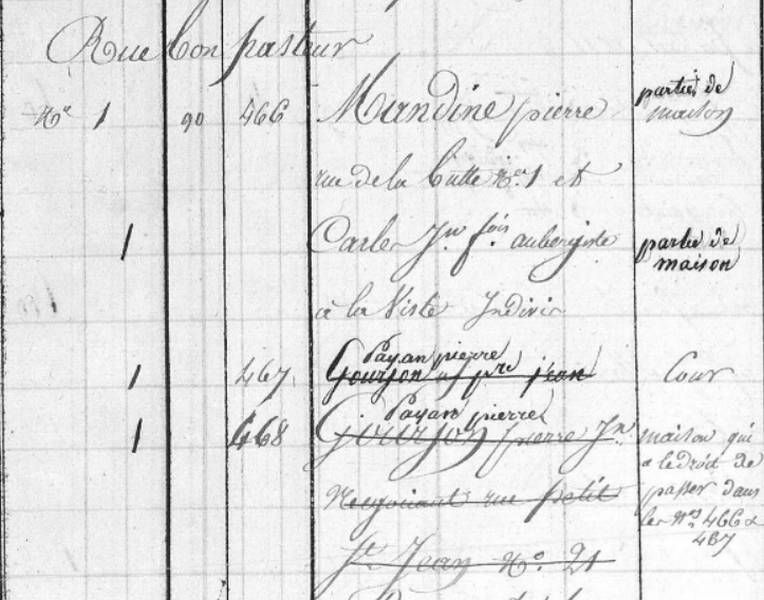 Rue bon pasteur
No 1 90 466 Mandine pierre partie de
maison
rue de la Butte No 1 et
1 Carle Jn fois aubergiste partie de
maison
à la Viste Indivis
Payan pierre
1 467 Gourjon pre jean Cour
Payan pierre
1 468 Gourjon pierre Jn maison qui
a le droit de
Negociant rue petit passer dans
les Nos 466 &
467
St Jean No 21